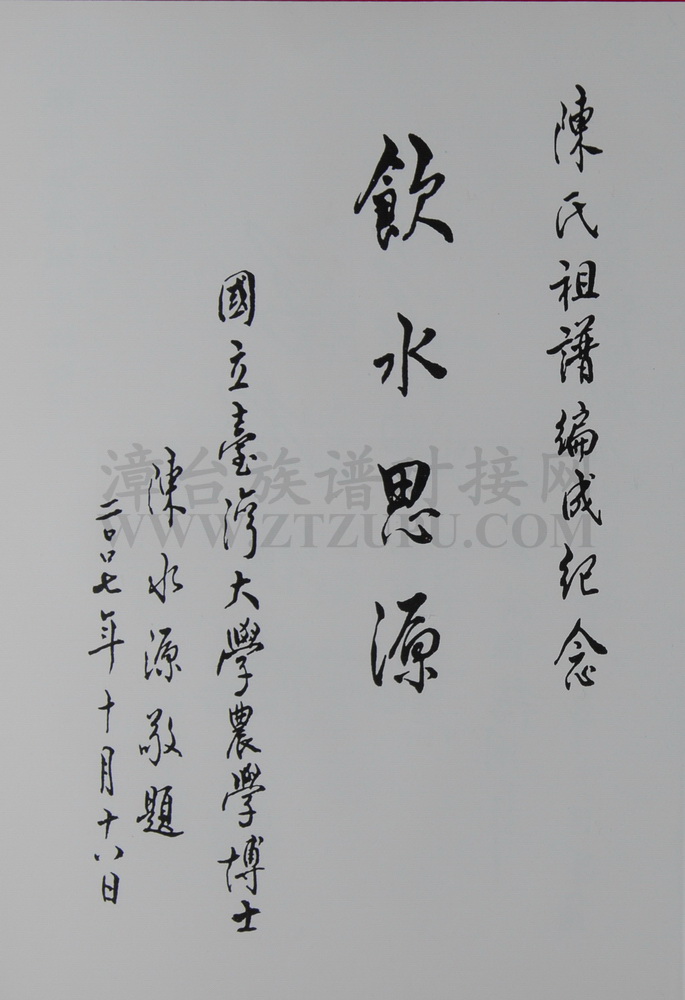 陳氏祖譜編成紀念
飲水思源
國立臺灣大學農學博士
陳水源敬題
二〇〇七年十月十八日
漳台族谱对接网
WWW.ZTZUPU.COM